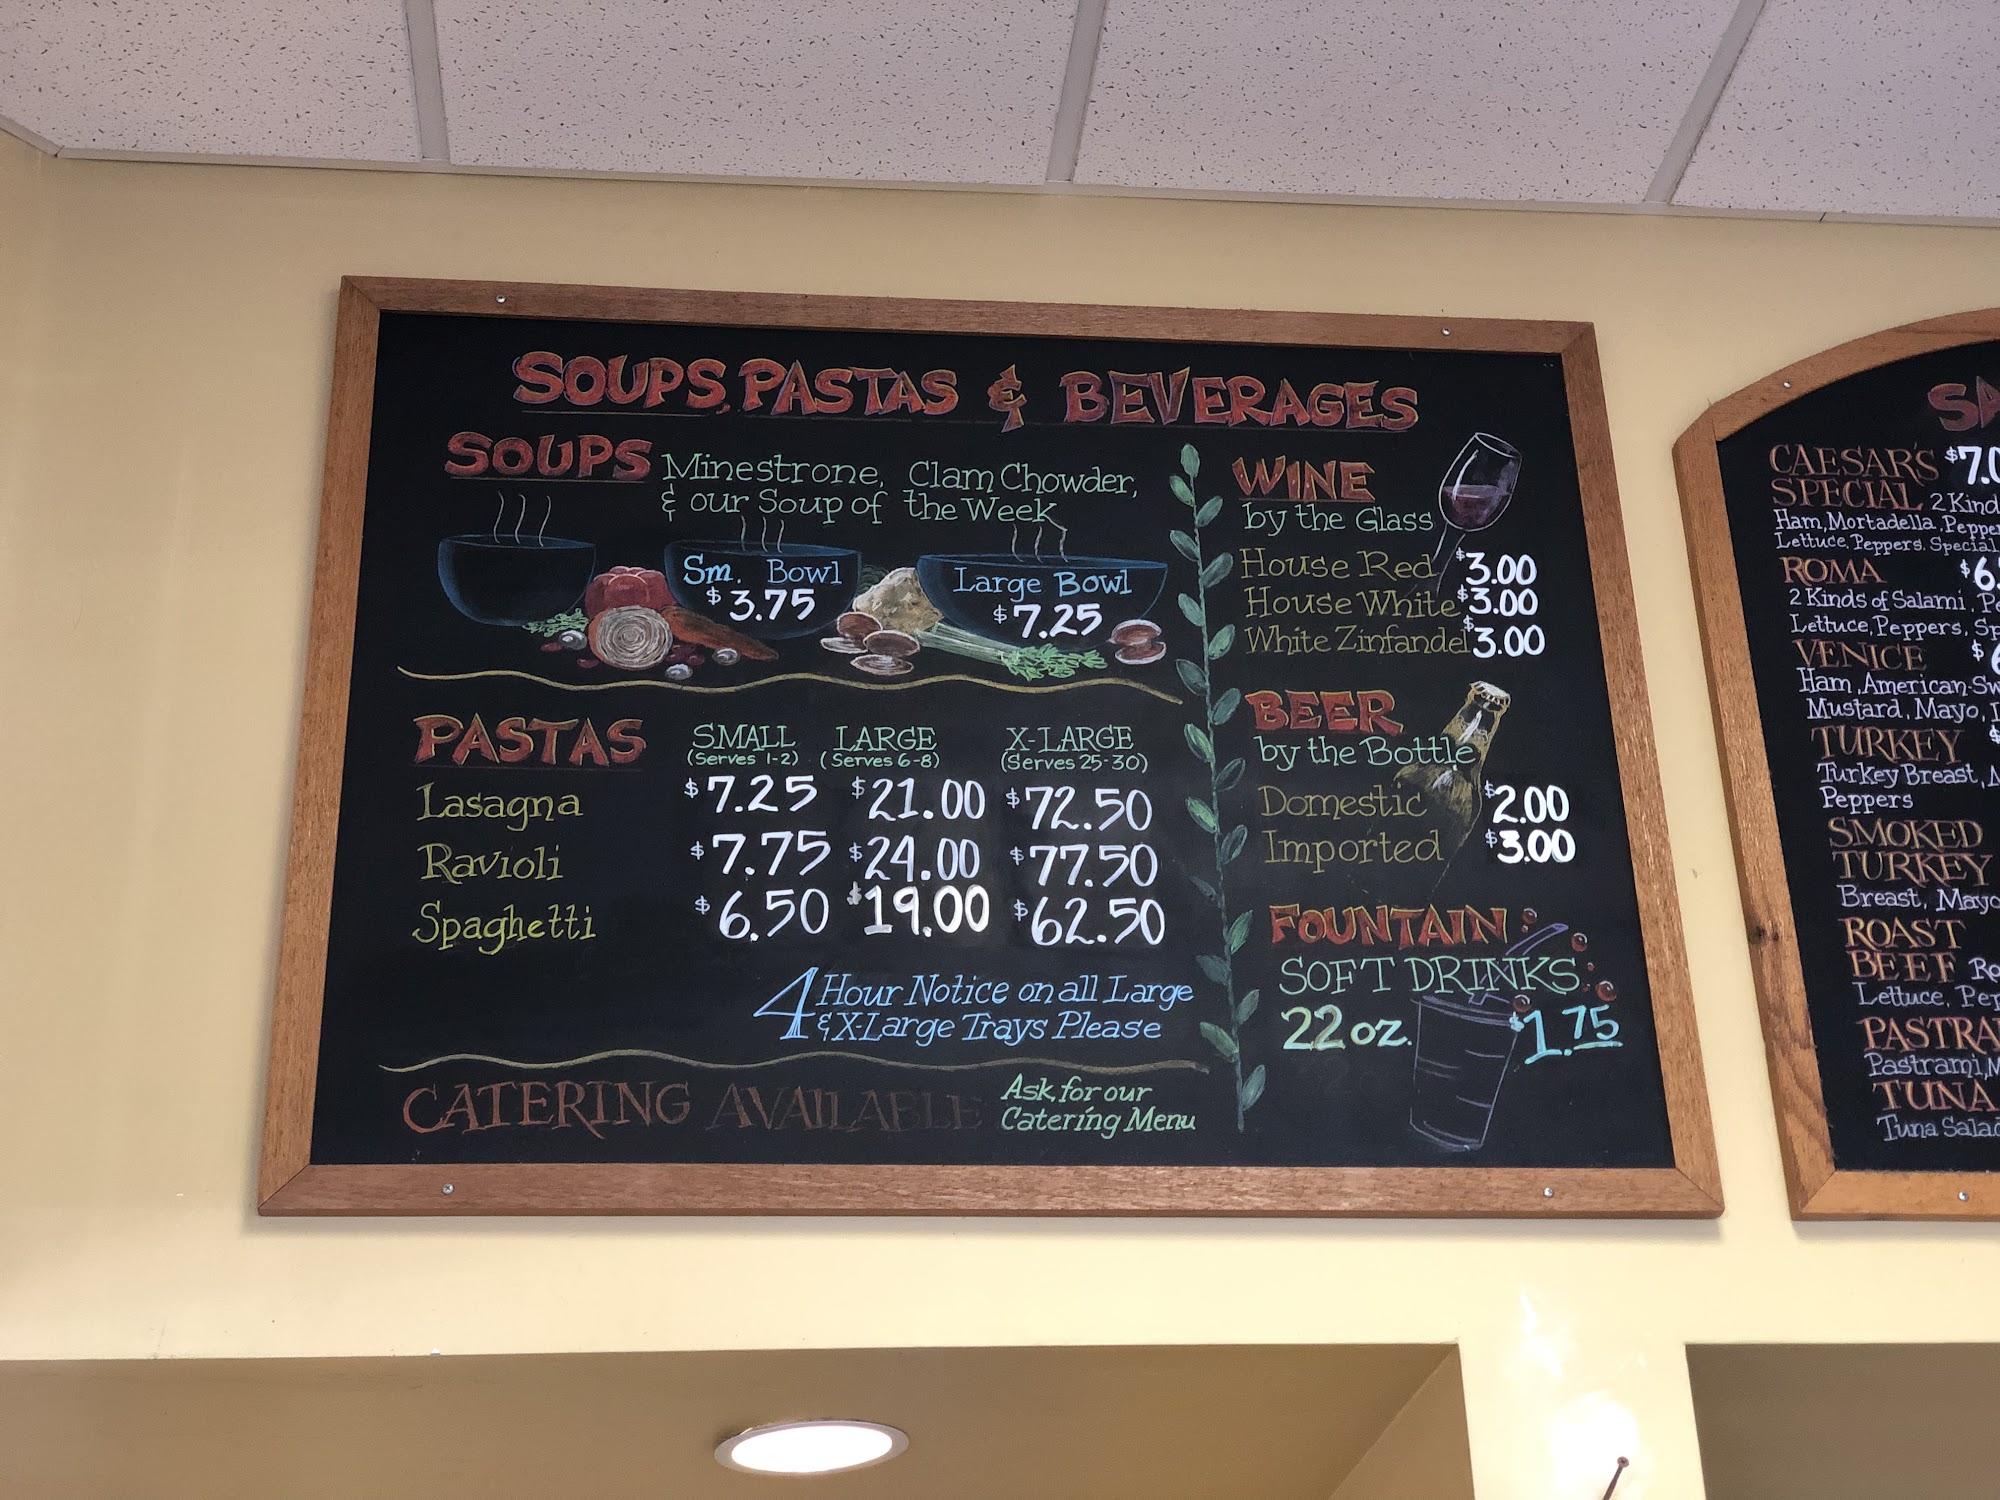 SOUPS, PASTAS & BEVERAGES
SOUPS Minestrone, Clam Chowder,
& our Soup of the Week
Sm. Bowl
$3.75
Large Bowl
$7.25
PASTAS SMALL LARGE X-LARGE
(Serves 1-2) (Serves 6-8) (Serves 25-30)
Lasagna $7.25 $21.00 $72.50
Ravioli $7.75 $24.00 $77.50
Spaghetti $6.50 $19.00 $62.50
4 Hour Notice on all Large
& X-Large Trays Please
CATERING AVAILABLE Ask for our
Catering Menu
WINE
by the Glass
House Red $3.00
House White $3.00
White Zinfandel $3.00
BEER
by the Bottle
Domestic $2.00
Imported $3.00
FOUNTAIN
SOFT DRINKS
22 oz. $1.75
CAESAR'S
SPECIAL 2
Ham, Mortadella,
Lettuce, Peppers, Special
ROMA
2 Kinds of Salami,
Lettuce, Peppers,
VENICE
Ham, American
Mustard, Mayo,
TURKEY
Turkey Breast,
Peppers
SMOKED
TURKEY
Breast, Mayo
ROAST
BEEF
Lettuce,
Pastrami,
TUNA
Tuna